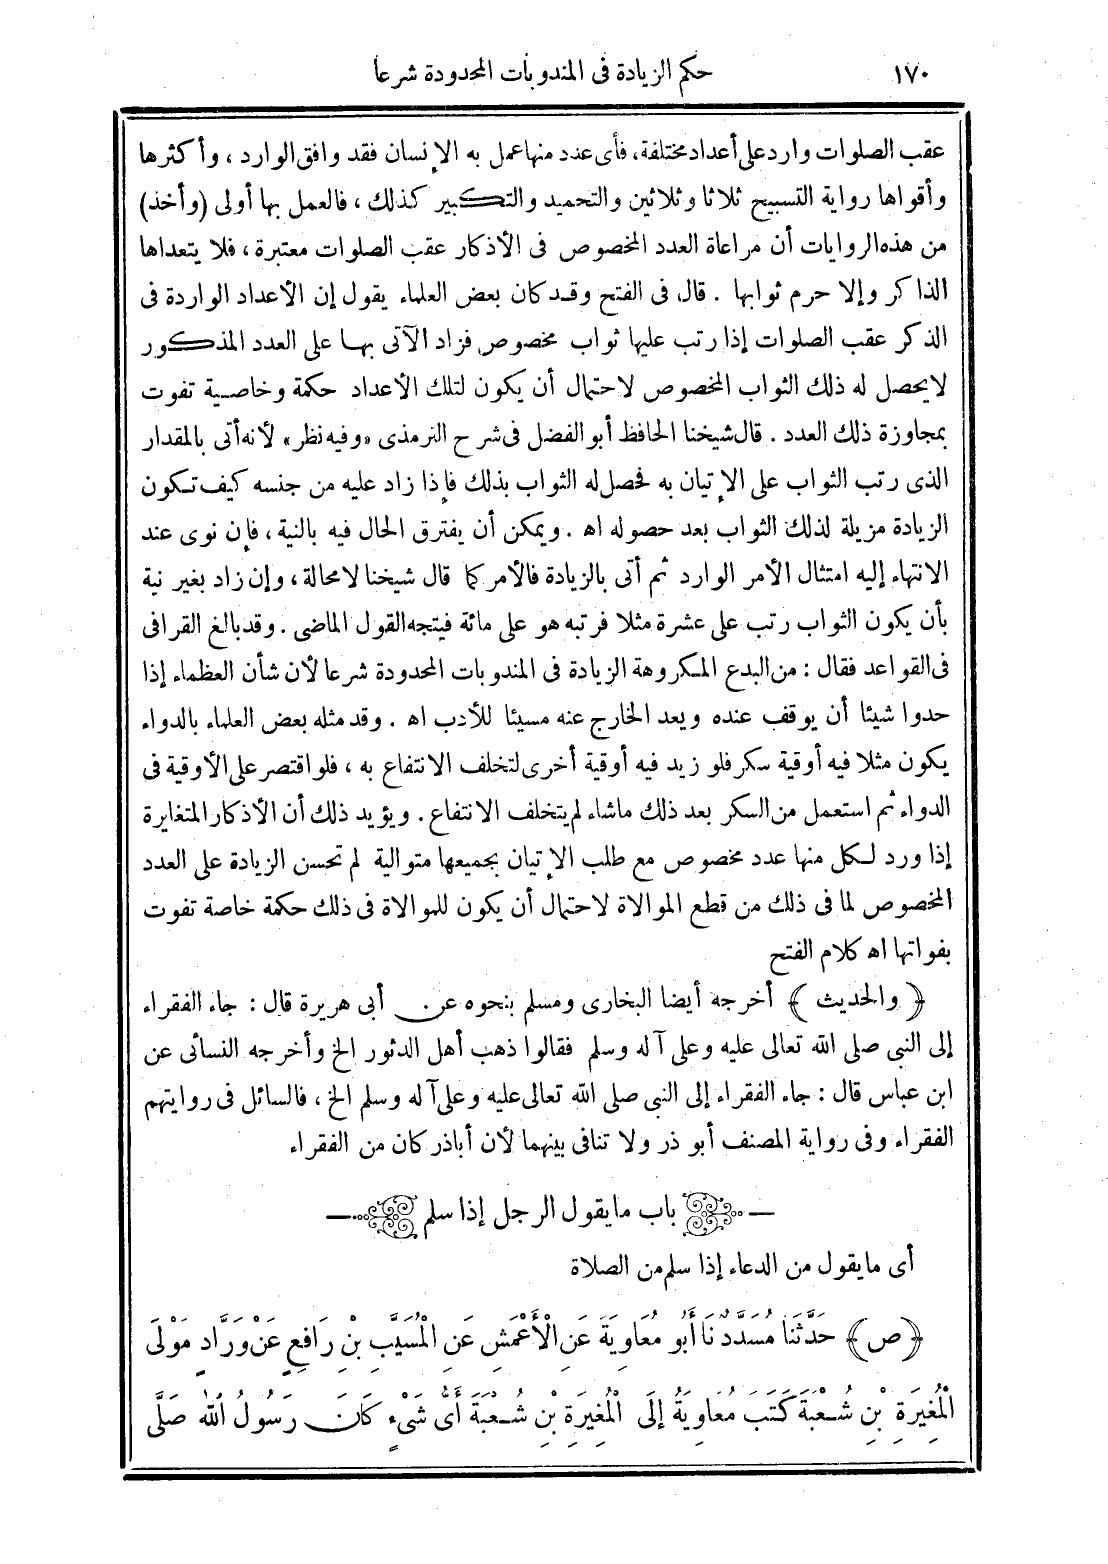 ١٧٠ حكم الزيادة فى المندوبات المحدودة شرعا
عقب الصلوات وارد على أعداد مختلفة، فأى عدد منها عمل به الإنسان فقد وافق الوارد ، وأكثرها
وأقواها رواية التسبيح ثلاثا وثلاثين والتحميد والتكبير كذلك ، فالعمل بها أولى (وأخذ)
من هذه الروايات أن مراعاة العدد المخصوص فى الأذكار عقب الصلوات معتبرة ، فلا يتعداها
الذاكر وإلا حرم ثوابها . قال فى الفتح وقد كان بعض العلماء يقول إن الأعداد الواردة فى
الذكر عقب الصلوات إذا رتب عليها ثواب مخصوص فزاد الآتى بها على العدد المذكور
لا يحصل له ذلك الثواب المخصوص لاحتمال أن يكون لتلك الأعداد حكمة وخاصية تفوت
بمجاوزة ذلك العدد . قال شيخنا الحافظ أبو الفضل فى شرح الترمذى «وفيه نظر» لأنه أتى بالمقدار
الذى رتب الثواب على الإتيان به فحصل له الثواب بذلك فإذا زاد عليه من جنسه كيف تكون
الزيادة مزيلة لذلك الثواب بعد حصوله اهـ . ويمكن أن يفترق الحال فيه بالنية ، فإن نوى عند
الانتهاء إليه امتثال الأمر الوارد ثم أتى بالزيادة فالأمر كما قال شيخنا لا محالة ، وإن زاد بغير نية
بأن يكون الثواب رتب على عشرة مثلا فرتبه هو على مائة فيتجه القول الماضى . وقد بالغ القرافى
فى القواعد فقال : من البدع المكروهة الزيادة فى المندوبات المحدودة شرعا لأن شأن العظماء إذا
حدوا شيئا أن يوقف عنده ويعد الخارج عنه مسيئا للأدب اهـ . وقد مثله بعض العلماء بالدواء
يكون مثلا فيه أوقية سكر فلو زيد فيه أوقية أخرى لتخلف الانتفاع به ، فلو اقتصر على الأوقية فى
الدواء ثم استعمل من السكر بعد ذلك ماشاء لم يتخلف الانتفاع . ويؤيد ذلك أن الأذكار المتغايرة
إذا ورد لكل منها عدد مخصوص مع طلب الإتيان بجميعها متوالية لم تحسن الزيادة على العدد
المخصوص لما فى ذلك من قطع الموالاة لاحتمال أن يكون للموالاة فى ذلك حكمة خاصة تفوت
بفواتها اهـ كلام الفتح
﴿ والحديث ﴾ أخرجه أيضا البخارى ومسلم بنحوه عن أبى هريرة قال : جاء الفقراء
إلى النبى صلى الله تعالى عليه وعلى آله وسلم فقالوا ذهب أهل الدثور الخ وأخرجه النسائى عن
ابن عباس قال : جاء الفقراء إلى النبى صلى الله تعالى عليه وعلى آله وسلم الخ ، فالسائل فى روايتهم
الفقراء وفى رواية المصنف أبو ذر ولا تنافى بينهما لأن أباذر كان من الفقراء
باب مايقول الرجل إذا سلم
أى مايقول من الدعاء إذا سلم من الصلاة
﴿ص﴾ حَدَّثَنَا مُسَدَّدٌ نَا أَبُو مُعَاوِيَةَ عَنِ الْأَعْمَشِ عَنِ الْمُسَيَّبِ بْنِ رَافِعٍ عَنْ وَرَّادٍ مَوْلَى
الْمُغِيرَةِ بْنِ شُعْبَةَ كَتَبَ مُعَاوِيَةُ إِلَى الْمُغِيرَةِ بْنِ شُعْبَةَ أَىُّ شَيْءٍ كَانَ رَسُولُ اللهِ صَلَّى